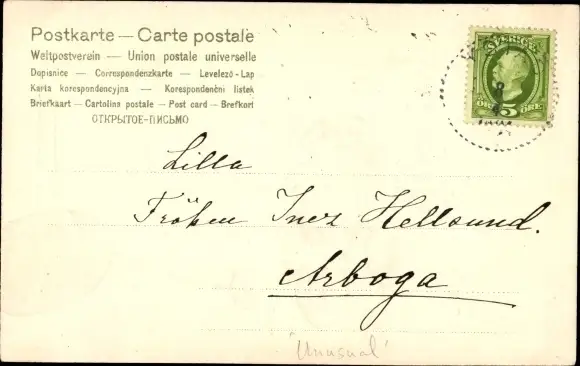 Postkarte — Carte postale
Weltpostverein — Union postale universelle
Dopisnice — Correspondenzkarte — Levelező-Lap
Karta korespondencyjna — Korespondenční listek
Briefkaart — Cartolina postale — Post card — Brefkort
ОТКРЫТОЕ-ПИСЬМО
SVERIGE
ÖRE 5 ÖRE
Lilla
Fröken Inez Hellsund.
Arboga
'Unusual'